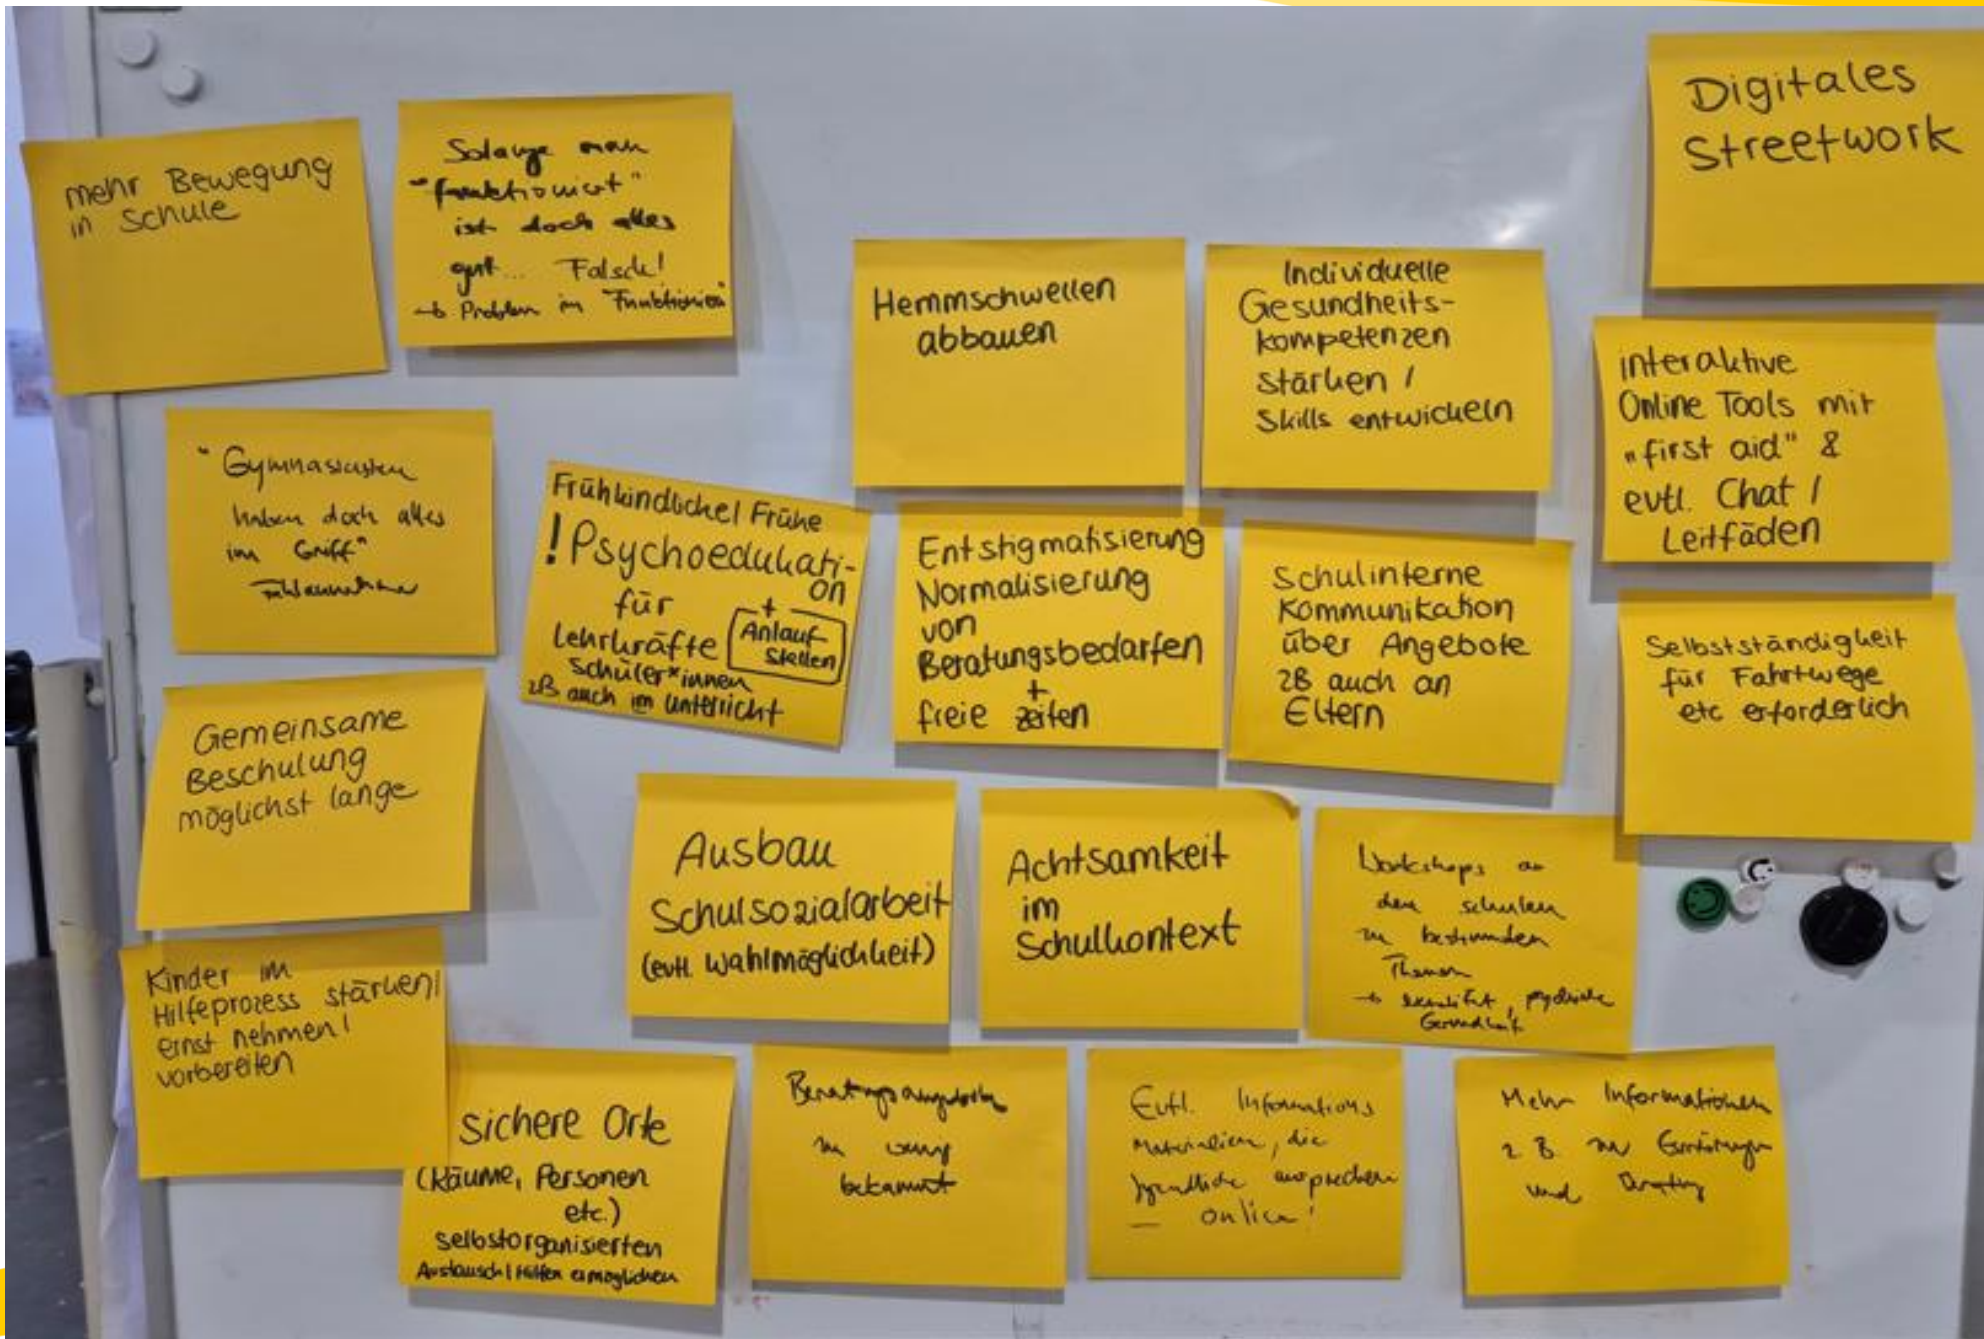 mehr Bewegung
in Schule
Solange man
"funktioniert"
ist doch alles
gut... Falsch!
→ Problem im "Funktionieren"
Digitales
Streetwork
Hemmschwellen
abbauen
Individuelle
Gesundheits-
kompetenzen
stärken /
Skills entwickeln
interaktive
Online Tools mit
"first aid" &
evtl. Chat /
Leitfäden
"Gymnasiasten
haben doch alles
im Griff"
Fehlannahme
Frühkindliche/ Frühe
! Psychoedukati-
on
für
Lehrkräfte
Schüler*innen
zB auch im Unterricht
+
Anlauf-
stellen
Entstigmatisierung
Normalisierung
von
Beratungsbedarfen
+
freie zeiten
Schulinterne
Kommunikation
über Angebote
zB auch an
Eltern
Selbstständigkeit
für Fahrtwege
etc erforderlich
Gemeinsame
Beschulung
möglichst lange
Ausbau
Schulsozialarbeit
(evtl. Wahlmöglichkeit)
Achtsamkeit
im
Schulkontext
Workshops an
den schulen
zu bestimmten
Themen
→ psychische
Gesundheit
Kinder im
Hilfeprozess stärken/
ernst nehmen/
vorbereiten
sichere Orte
(Räume, Personen
etc.)
selbstorganisierten
Austausch/Hilfen ermöglichen
Beratungsangebote
zu wenig
bekannt
Evtl. Informations
materialien, die
Jugendliche ansprechen
— online!
Mehr Informationen
z.B. zu
und Beratung